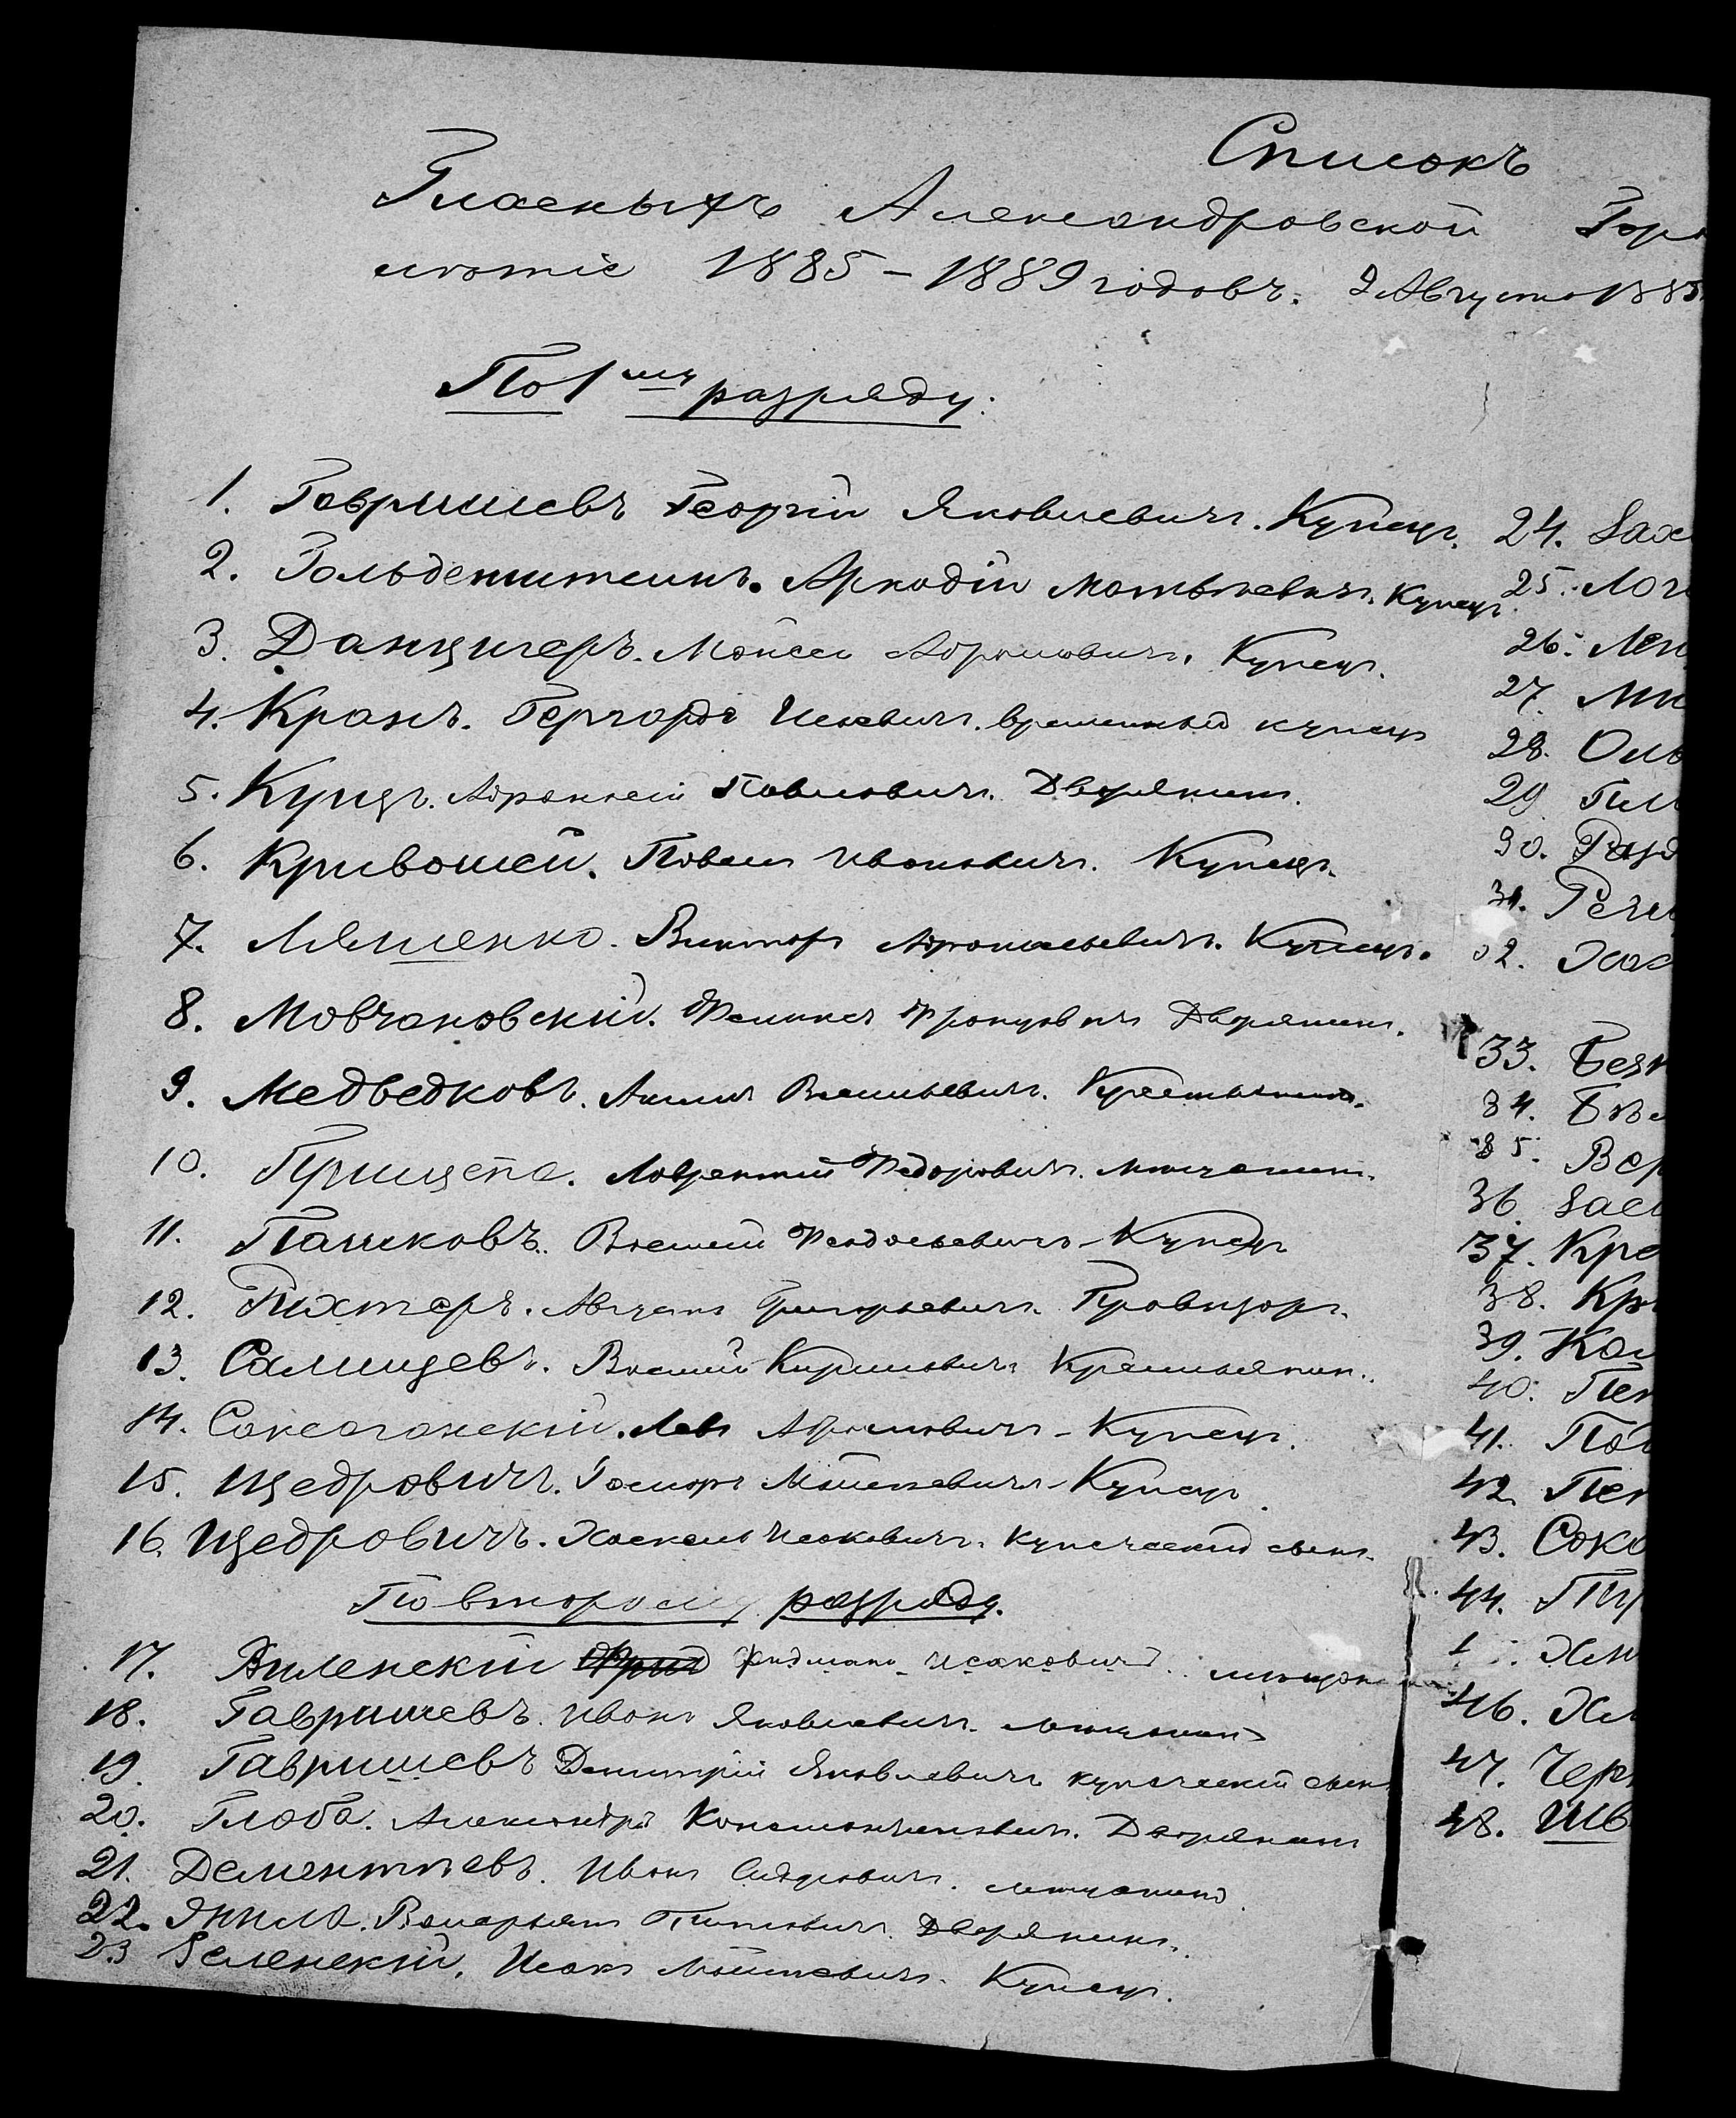 Списокъ
Гласныхъ Александровской Горо
1885 – 1889 годовъ. 2 Августа 1885
По 1му разряду.
1. Гавришевъ Георгій Яковлевичъ. Купецъ.
2. Гольденштейнъ. Аркадій Матвѣевичъ. Купецъ.
3. Данцигеръ. Мойсей Абрамовичъ. Купецъ.
4. Кранъ. Гергардъ временный купецъ
5. Кунцъ. Афанасій Павловичъ. Дворянинъ.
6. Кривошей. Павелъ Ивановичъ. Купецъ.
7. Ляшенко. Викторъ Афанасьевичъ. Купецъ.
8. Мовчановскій. Феликсъ Францовичъ Дворянинъ.
9. Медведковъ. Васильевичъ. Крестьянинъ.
10. Прищепа. Лаврентій Федоровичъ. мѣщанинъ.
11. Пашковъ. Василій Феодосьевичъ – Купецъ
12. Рихтеръ. Августъ Григорьевичъ. Провизоръ.
13. Салищевъ. Василій Кириловичъ Крестьянин.
14. Саксаганскій. Левъ Абрамовичъ – Купецъ.
15. Щедровичъ. Мойсеевичъ – Купецъ.
16. Щедровичъ. Хаскель Исаковичъ. купеческий сынъ.
По второму разряду.
17. Виленскій Фридманъ Исаковичъ. мѣщан
18. Гавришевъ. Иванъ Яковлевичъ. мѣщанинъ
19. Гавришевъ Дмитрій Яковлевичъ купеческій сынъ
20. Глоба. Александръ Константиновичъ. Дворянинъ
21. Дементьевъ. Иванъ Сидоровичъ. мѣщанинъ
22. Валерьянъ Дворянинъ.
23 Зеленскій. Исакъ Мойсеевичъ. Купецъ.
24. Зах
25. Лог
26. Лен
27. Ми
28. Оль
29. Пил
30. Разд
31.
32. Хас
33. Безк
34. Бѣл
35. Вер
36. Зас
37. Кра
38. Кри
39. Кол
40. Пен
41. Пол
42. Пет
43. Соко
44.
46.
47. Черн
48. Шв